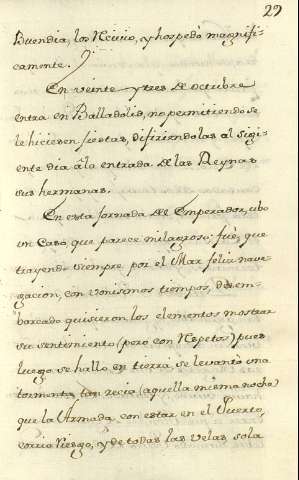 29
Buendia, los recivio, y hospedò magnifi-
camente.
En veinte y tres de octubre
entra en Balladolid, no permitiendo se
le hiciesen fiestas, difiriendolas al sigi-
ente dia à la entrada de las Reynas
sus hermanas.
En esta jornada del Emperador, ubo
un Caso, que parece milagroso; fuè, que
trayendo siempre por el Mar feliz nave-
gacion, con vonisimos tiempos, desem-
barcado quisieron los elementos mostrar
su sentimiento (pero con Respeto) pues
luego se hallo en tierra, se levantò una
tormenta tan recia (aquella misma noche)
que la Armada, con estar en el Puerto,
corrio Riesgo, y de todas las velas sola